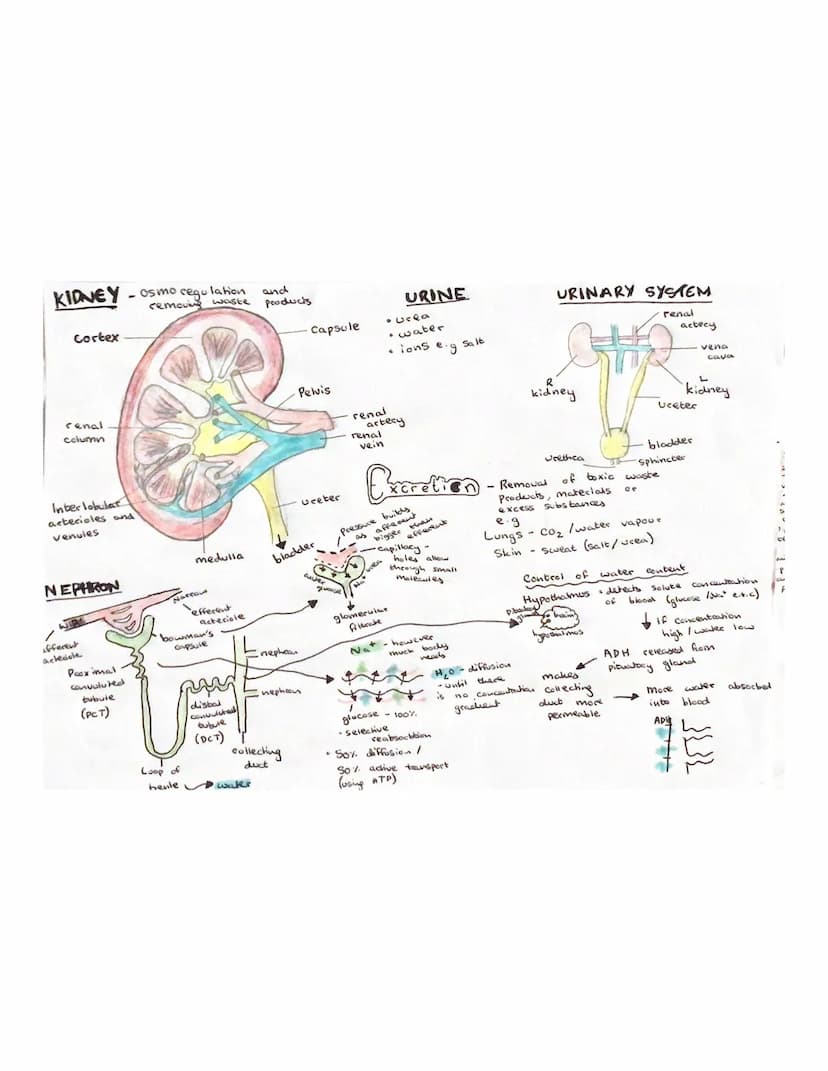 KIDNEY - osmoregulation and
removing waste products
cortex
capsule
Pelvis
renal
artery
renal
vein
renal
column
Interlobular
arterioles and
venules
medulla
ureter
bladder
URINE
• urea
• water
• ions e.g salt
URINARY SYSTEM
renal
artery
vena
cava
R
kidney
L
kidney
ureter
bladder
urethra
sphincter
Excretion - Removal of toxic waste
products, materials or
excess substances
e.g
Lungs - CO2 / water vapour
Skin - sweat (salt/urea)
NEPHRON
Narrow
efferent
arteriole
wide
afferent
arteriole
bowman's
capsule
Proximal
convoluted
tubule
(PCT)
distal
convoluted
tubule
(DCT)
nephron
nephron
collecting
duct
Loop of
henle
water
pressure builds
as afferent
bigger than
efferent
capillary -
holes allow
through small
molecules
water
glucose
Na+
urea
glomerular
filtrate
Na+ - however
much body
needs
H2O - diffusion
- until there
is no concentration
gradient
glucose - 100%
- selective
reabsorbtion
• 50% diffusion /
50% active transport
(using ATP)
Control of water content
Hypothalmus - detects solute concentration
of blood (glucose/Na+ e.t.c)
pituitary
gland
brain
hypothalmus
If concentration
high / water low
ADH released from
pituatary gland
makes
collecting
duct more
permeable
more water absorbed
into blood
ADH